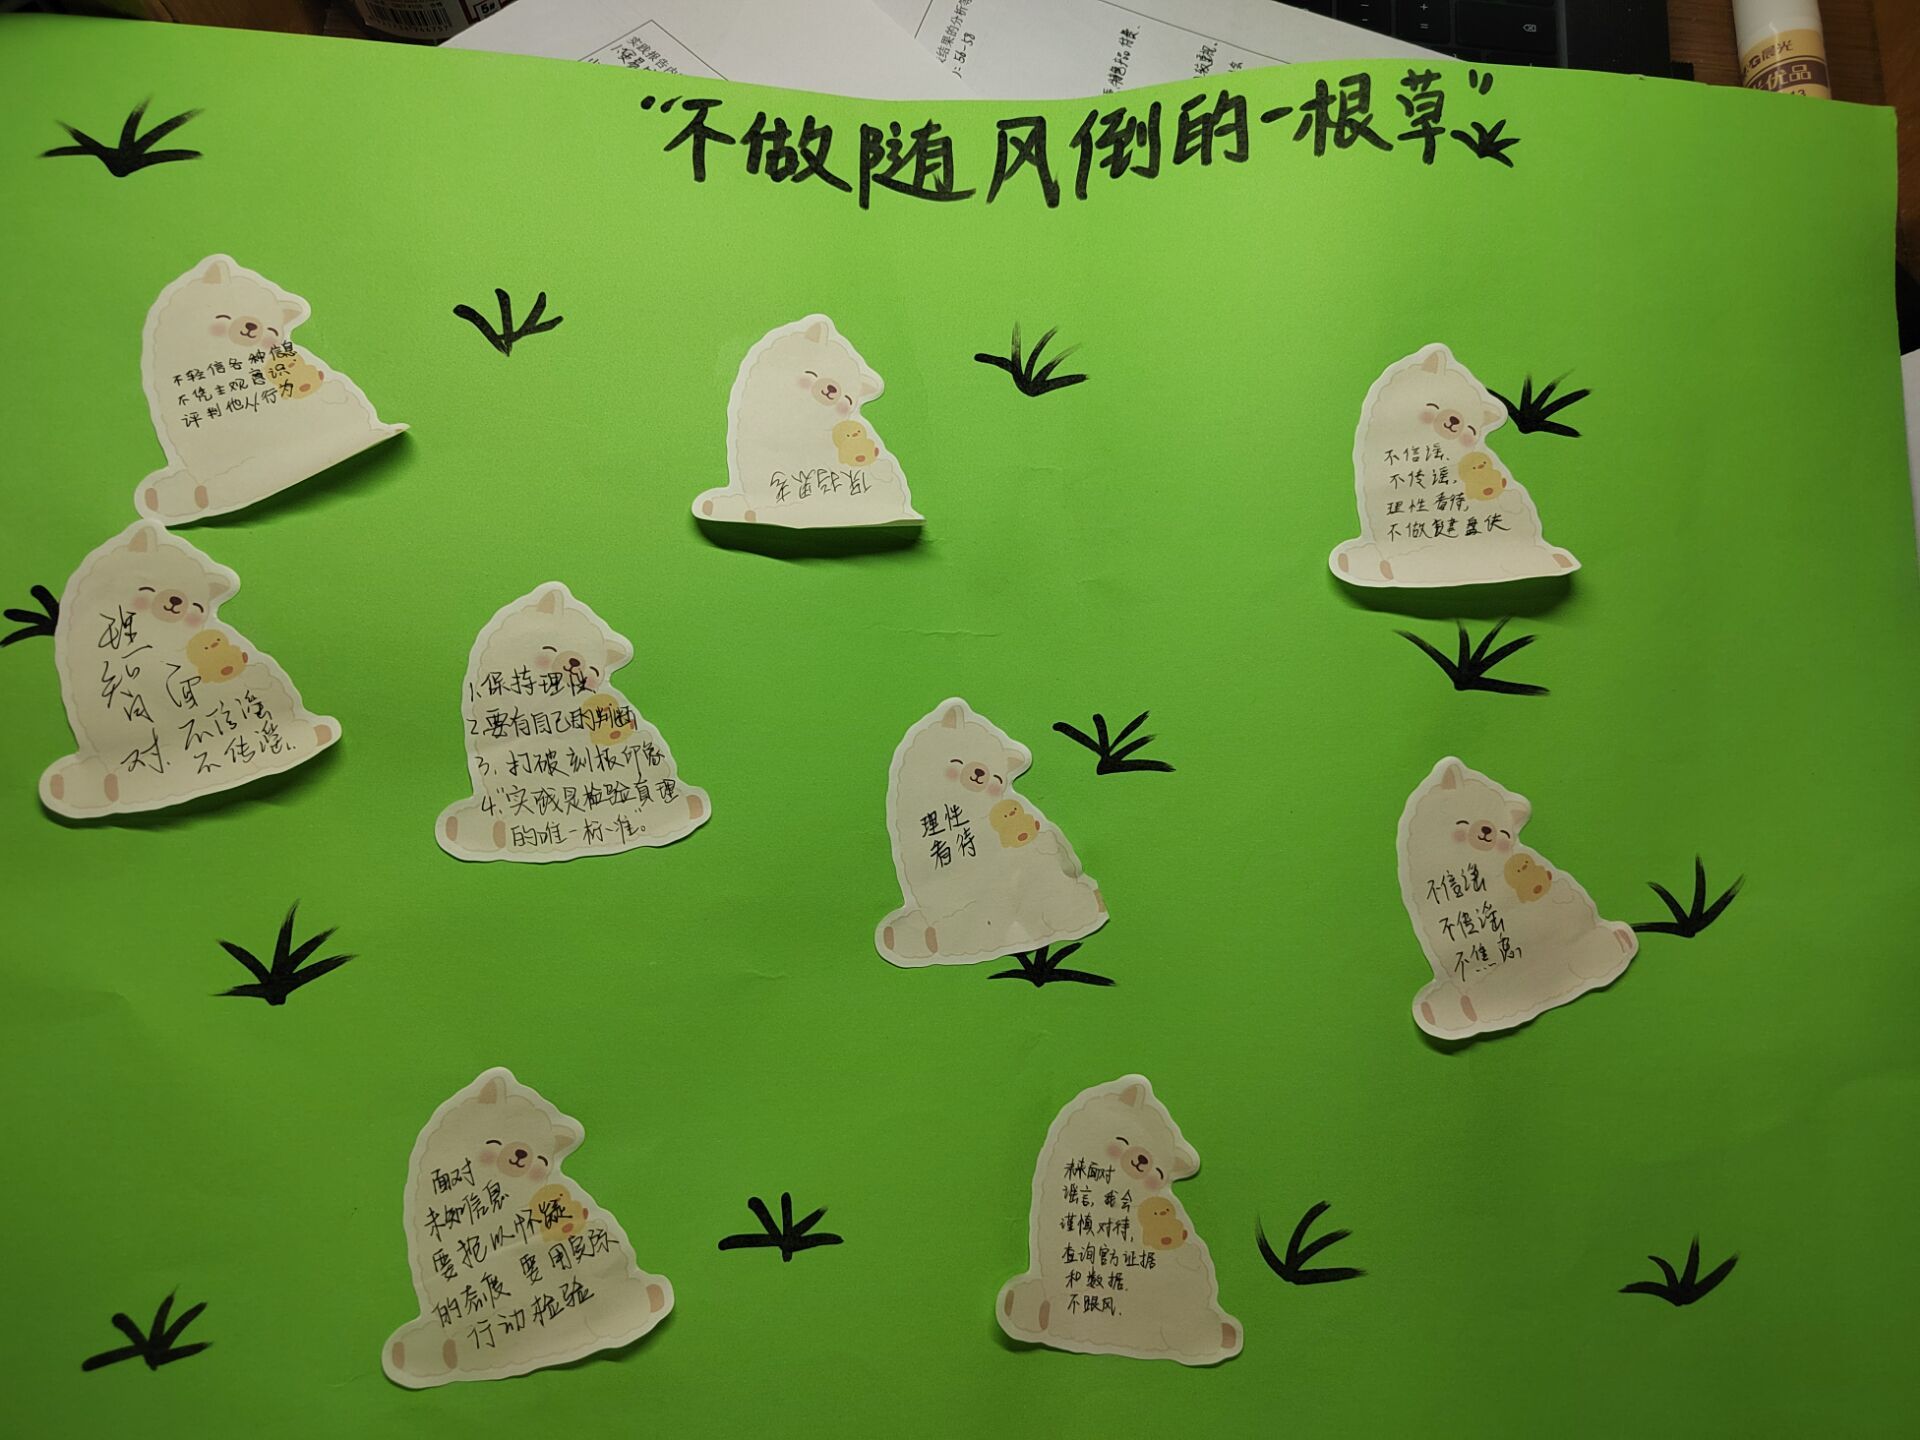 “不做随风倒的一根草”
不轻信各种信息
不凭主观意识
评判他人行为
保持思考
不信谣、
不传谣，
理性看待，
不做键盘侠
理
智
面
对
不信谣
不传谣、
1、保持理性
2、要有自己的判断
3、打破刻板印象
4、“实践是检验真理
的唯一标准”。
理性
看待
不信谣
不传谣
不焦虑
面对
未知信息
要抱以怀疑
的态度 要用实际
行动检验
未来面对
谣言，我会
谨慎对待，
查询官方证据
和数据、
不跟风、
实践报告内
结果的分析
1: 56-58
晨光
优品